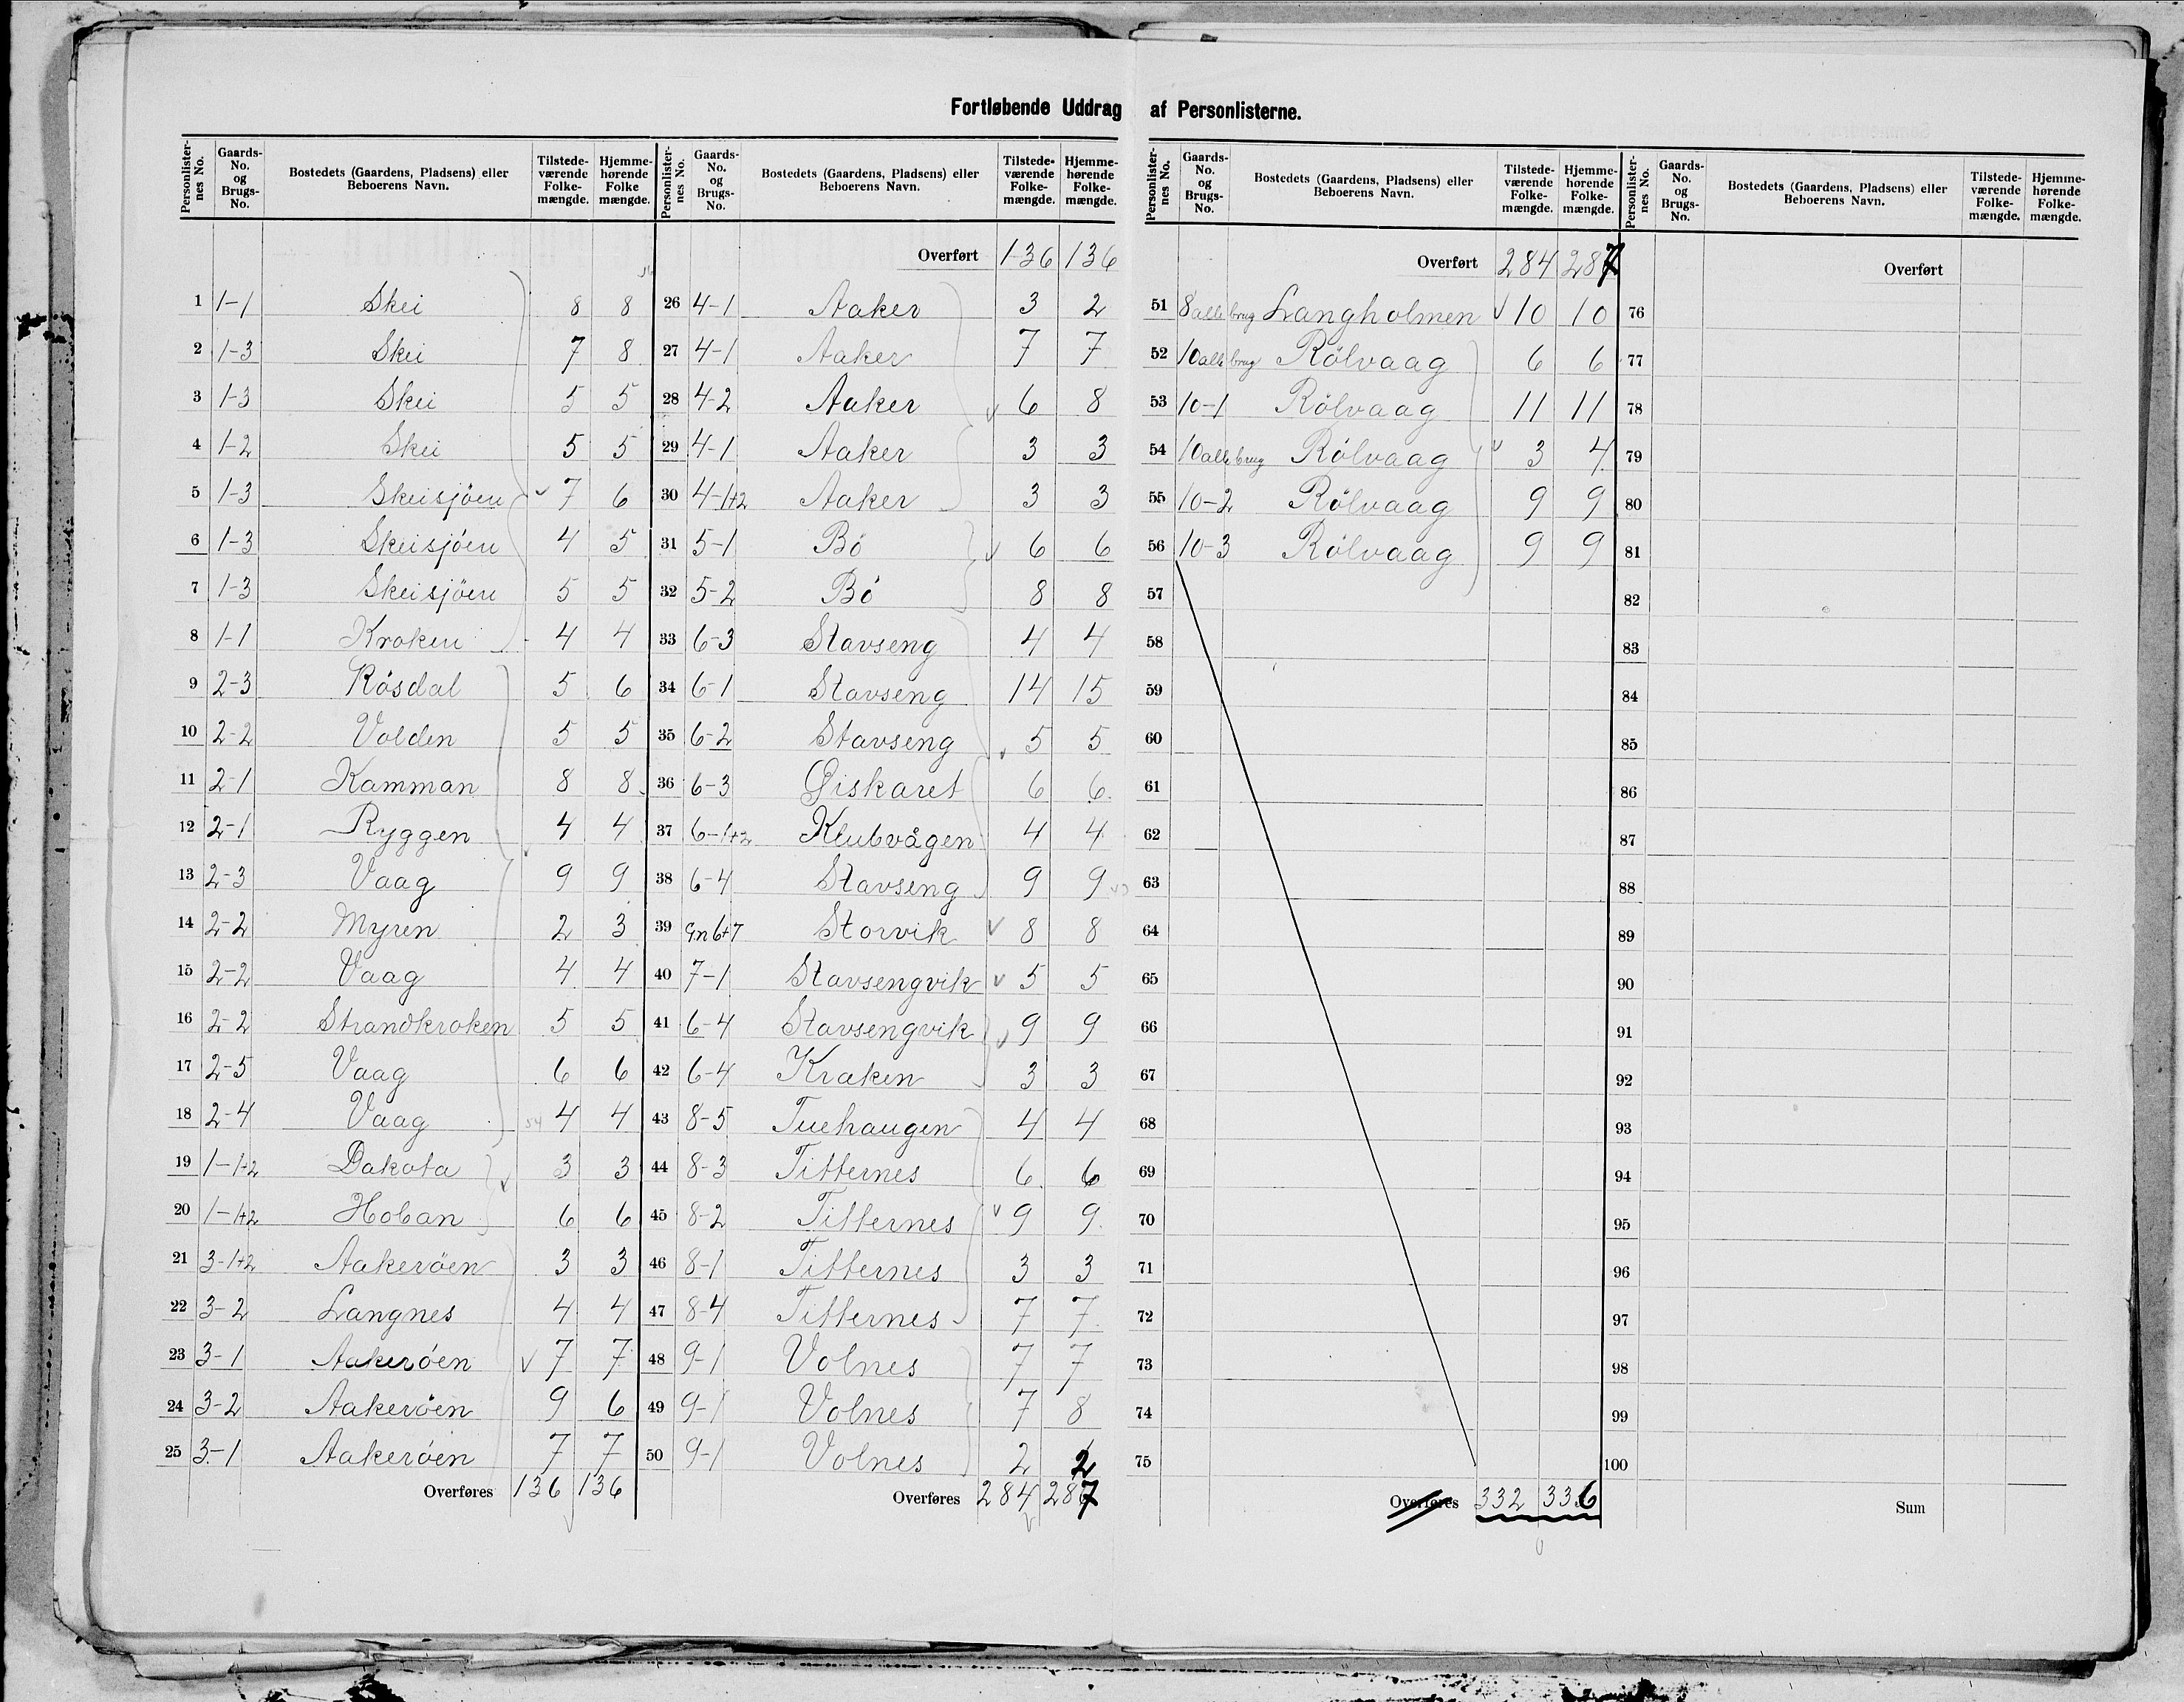 Fortløbende Uddrag af Personlisterne.
Personlisternes No. Gaards-No. og Brugs-No. Bostedets (Gaardens, Pladsens) eller Beboerens Navn. Tilstedeværende Folkemængde. Hjemmehørende Folke mængde.
1 1-1 Skei 8 8
2 1-3 Skei 7 8
3 1-3 Skei 5 5
4 1-2 Skei 5 5
5 1-3 Skeisjöen 7 6
6 1-3 Skeisjöen 4 5
7 1-3 Skeisjöen 5 5
8 1-1 Kroken 4 4
9 2-3 Rösdal 5 6
10 2-2 Volden 5 5
11 2-1 Kamman 8 8
12 2-1 Ryggen 4 4
13 2-3 Vaag 9 9
14 2-2 Myren 2 3
15 2-2 Vaag 4 4
16 2-2 Strandkroken 5 5
17 2-5 Vaag 6 6
18 2-4 Vaag 4 4
19 1-1+2 Dakota 3 3
20 1-1+2 Hoban 6 6
21 3-1+2 Aakeröen 3 3
22 3-2 Langnes 4 4
23 3-1 Aakeröen 7 7
24 3-2 Aakeröen 9 6
25 3-1 Aakeröen 7 7
Overføres 136 136
Personlisternes No. Gaards-No. og Brugs-No. Bostedets (Gaardens, Pladsens) eller Beboerens Navn. Tilstedeværende Folkemængde. Hjemmehørende Folkemængde.
Overført 136 136
26 4-1 Aaker 3 2
27 4-1 Aaker 7 7
28 4-2 Aaker 6 8
29 4-1 Aaker 3 3
30 4-1+2 Aaker 3 3
31 5-1 Bö 6 6
32 5-2 Bö 8 8
33 6-3 Stavseng 4 4
34 6-1 Stavseng 14 15
35 6-2 Stavseng 5 5
36 6-3 Giskaret 6 6
37 6-1+2 Klubvågen 4 4
38 6-4 Stavseng 9 9
39 Gn 6+7 Storvik 8 8
40 7-1 Stavsengvik 5 5
41 6-4 Stavsengvik 9 9
42 6-4 Kraken 3 3
43 8-5 Tuehaugen 4 4
44 8-3 Titternes 6 6
45 8-2 Titternes 9 9
46 8-1 Titternes 3 3
47 8-4 Titternes 7 7
48 9-1 Volnes 7 7
49 9-1 Volnes 7 8
50 9-1 Volnes 2 2
Overføres 284 287
Personlisternes No. Gaards-No. og Brugs-No. Bostedets (Gaardens, Pladsens) eller Beboerens Navn. Tilstedeværende Folkemængde. Hjemmehørende Folkemængde.
Overført 284 287
51 8 alle brug Langholmen 10 10
52 10 alle brug Rölvaag 6 6
53 10-1 Rölvaag 11 11
54 10 alle brug Rölvaag 3 4
55 10-2 Rölvaag 9 9
56 10-3 Rölvaag 9 9
57
58
59
60
61
62
63
64
65
66
67
68
69
70
71
72
73
74
75
Overføres 332 336
Personlisternes No. Gaards-No. og Brugs-No. Bostedets (Gaardens, Pladsens) eller Beboerens Navn. Tilstedeværende Folkemængde. Hjemmehørende Folkemængde.
Overført
76
77
78
79
80
81
82
83
84
85
86
87
88
89
90
91
92
93
94
95
96
97
98
99
100
Sum